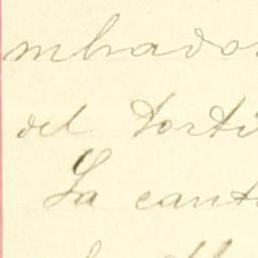 mbrador
del torti
La cant